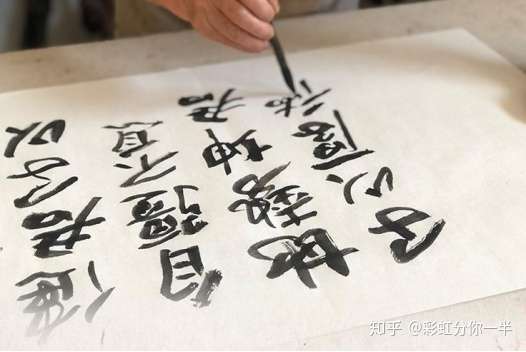 健君子以
自强不息
地勢坤君
子以厚
知乎 @彩虹分你一半